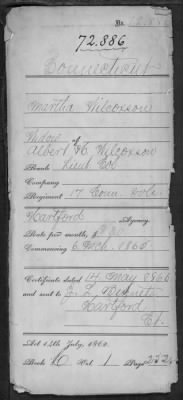 No.
72.886
Connecticut
Martha Wilcoxson
Widow
Albert H. Wilcoxson
Rank Lieut Col
Company
Regiment 17 Conn Vols.
Hartford Agency.
Rate per month, $
Commencing 6 1865
Certificate dated 14 May 1866
and sent to
Hartford
Ct.
Act 14th July, 1862.
Book Vol 1 Page